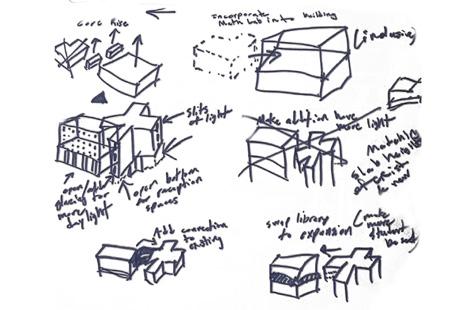 core Rise
incorporate
Math Lab into building
(inclusive)
Slits
of light
make addition have
more light
open/add
glazing for
more
daylight
open bottom
for reception
spaces
slab
now
Add connection
to
existing
swap library
to expansion
(make
more
student
based)